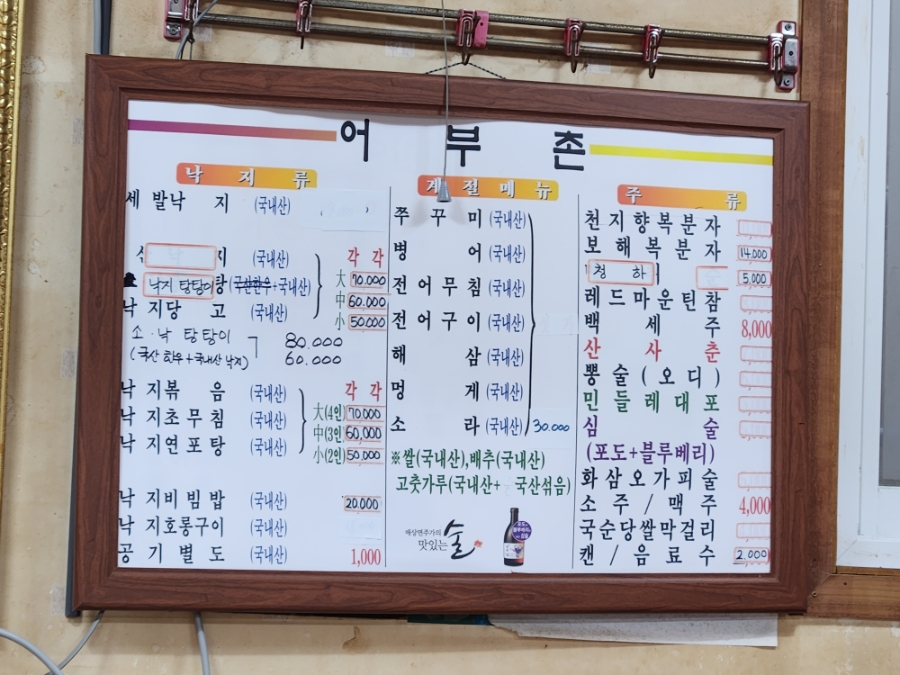 어부촌
낙지류
세발낙지 (국내산)
지 (국내산) 각각
낙지탕탕이탕 (국산한우+국내산) 大 70.000
낙지당고 (국내산) 中 60.000
小 50.000
소.낙 탕탕이 80.000
(국산 한우+국내산 낙지) 60.000
낙지볶음 (국내산) 각각
낙지초무침 (국내산) 大(4인) 70,000
中(3인) 60,000
낙지연포탕 (국내산) 小(2인) 50,000
낙지비빔밥 (국내산) 20.000
낙지호롱구이 (국내산)
공기별도 (국내산) 1,000
계절메뉴
쭈꾸미 (국내산)
병어 (국내산)
전어무침 (국내산)
전어구이 (국내산)
해삼 (국내산)
멍게 (국내산)
소라 (국내산) 30.000
※쌀(국내산),배추(국내산)
고춧가루(국내산+ 국산섞음)
배상면주가의
맛있는 술
주류
천지향복분자
보해복분자 14,000
청하 5,000
레드마운틴참
백세주 8,000
산사춘
뽕술(오디)
민들레대포
심술
(포도+블루베리)
화삼오가피술
소주/맥주 4,000
국순당쌀막걸리
캔/음료수 2.000